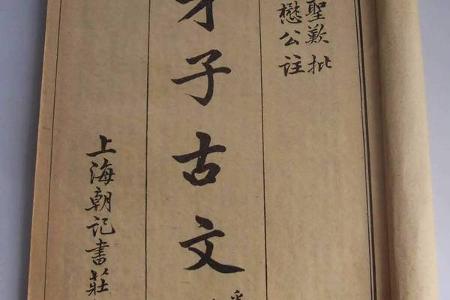 聖歎批
懋公註
才子古文
上海朝記書莊